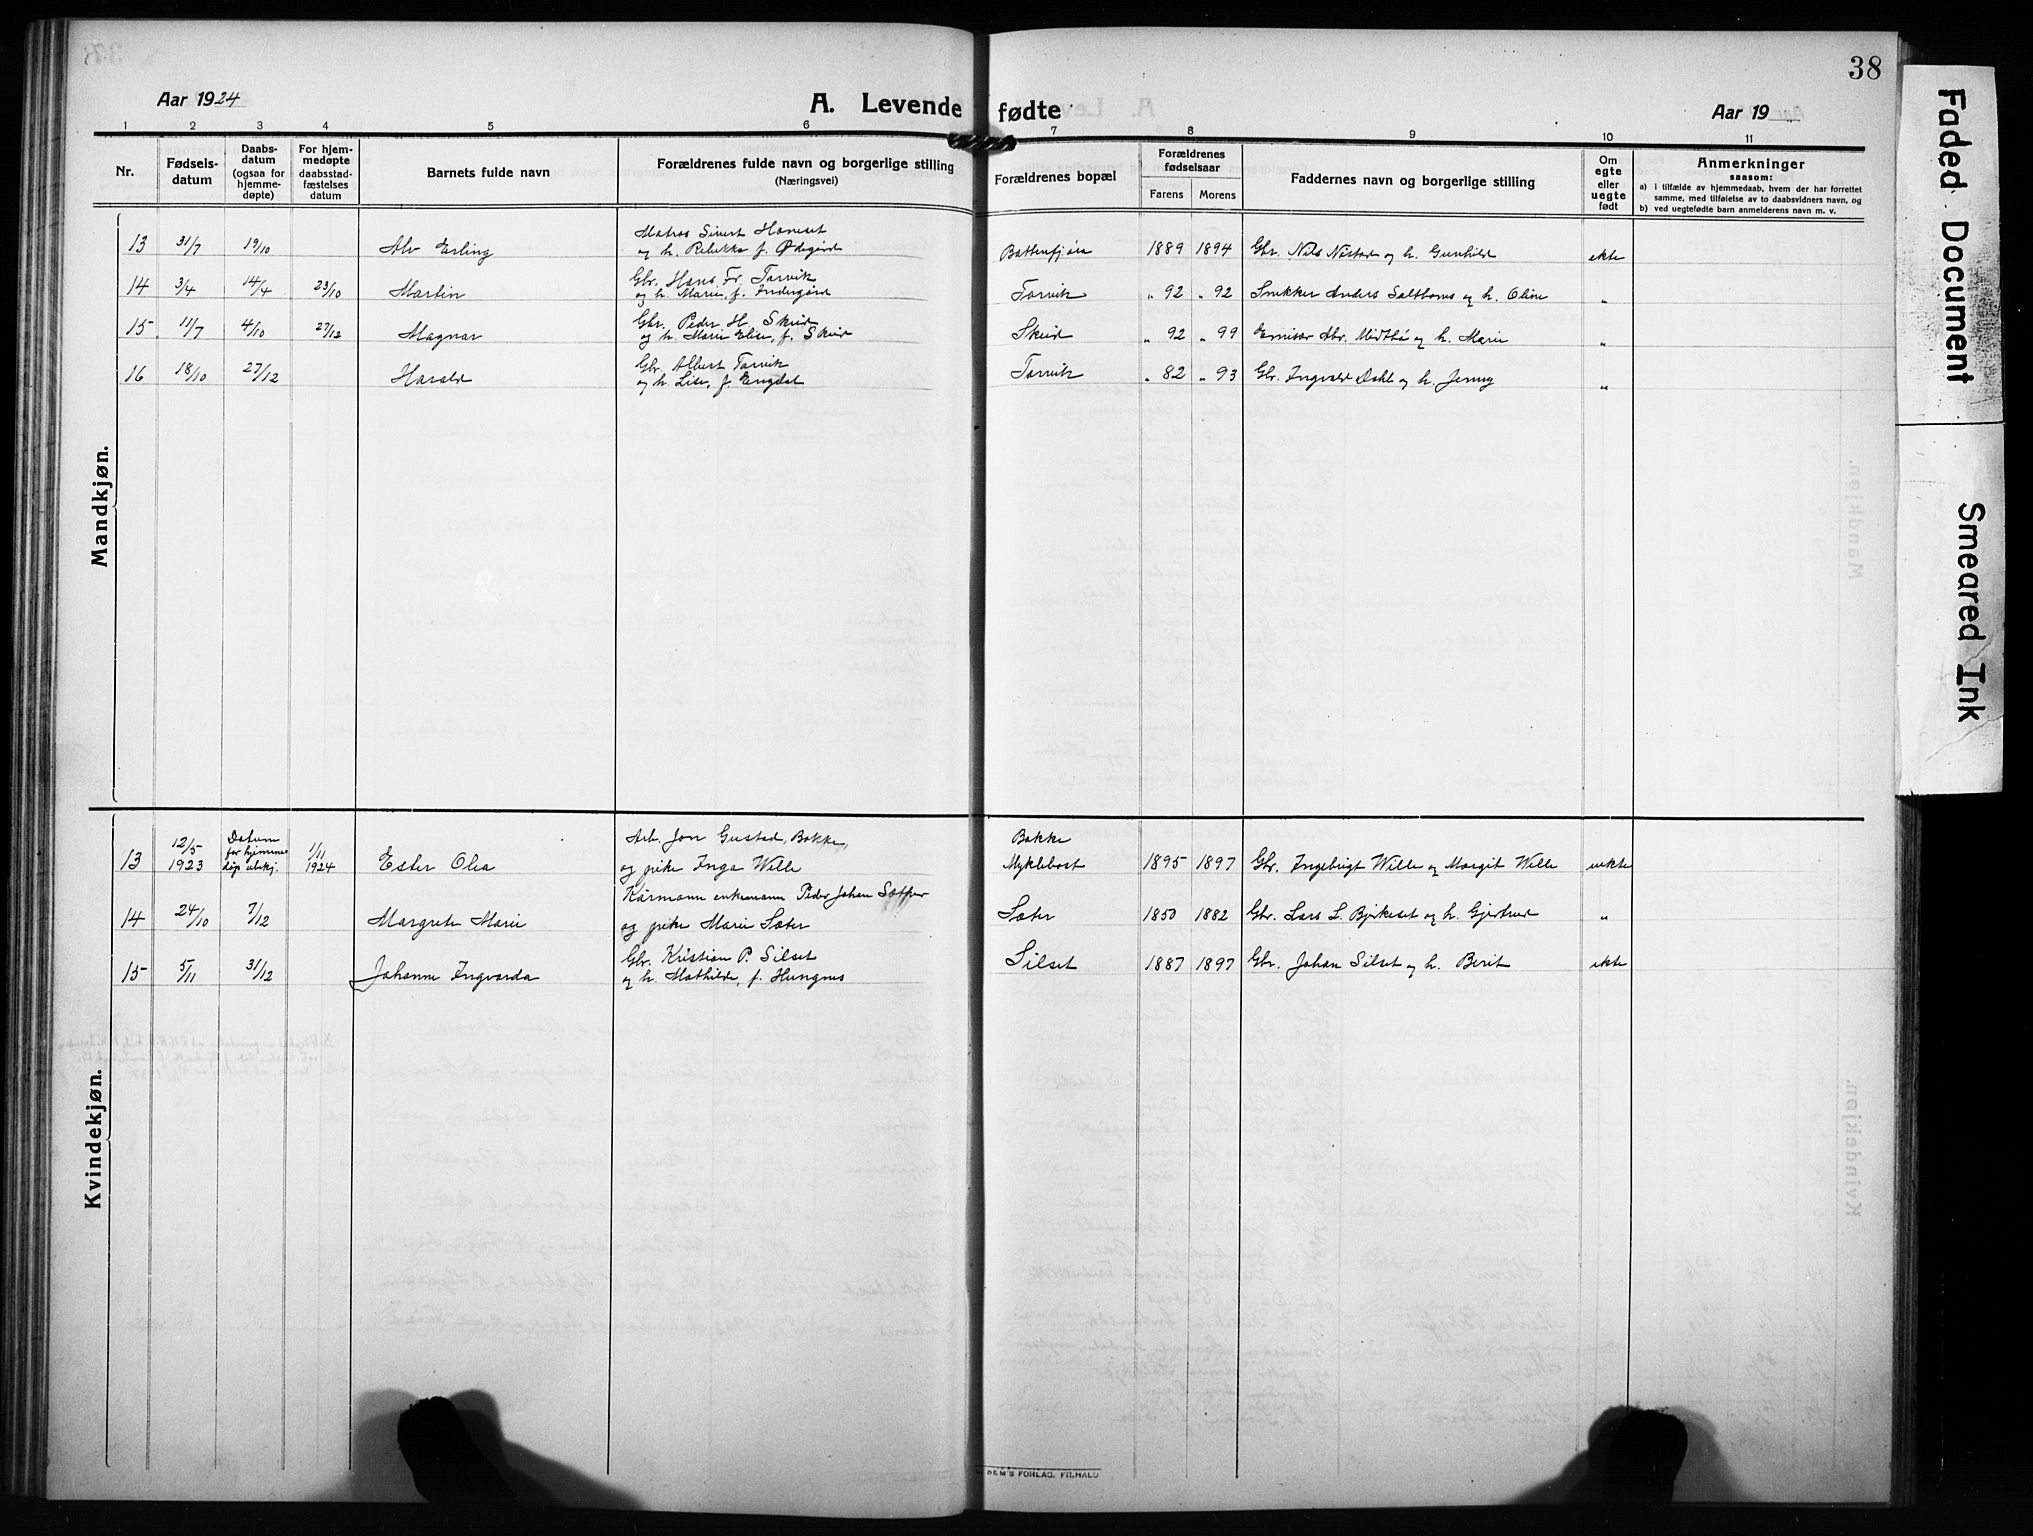 38
Aar 1924
A. Levende fødte
Aar 19
1 2 3 4 5 6 7 8 9 10 11
Nr.
Fødsels-
datum
Daabs-
datum
(ogsaa for
hjemme-
døpte)
For hjem-
medøpte
daabsstad-
fæstelses
datum
Barnets fulde navn
Forældrenes fulde navn og borgerlige stilling
(Næringsvei)
Forældrenes bopæl
Forældrenes
fødselsaar
Farens Morens
Faddernes navn og borgerlige stilling
Om
egte
eller
uegte
født
Anmerkninger
saasom:
a) i tilfælde av hjemmedaab, hvem der har forrettet
samme, med tilføielse av to daabsvidners navn, og
b) ved uegtefødte barn anmelderens navn m. v.
Mandkjøn.
Matros Sivert Haneset
13 31/7 19/10 Alv Erling og h. Rebekka f. Ødegård Battenfjøra 1889 1894 Gbr. Nils Nåstad og h. Gunhild ekte
Gbr. Hans Fr. Torvik
14 3/4 14/4 23/10 Martin og h. Marie, f. Indergård Torvik " 92 " 92 Snekker Anders Saltbones og h. Oline "
Gbr. Peder H. Skeid
15 11/7 4/10 27/12 Magnar og h. Marie Elise, f. Skeid Skeid " 92 " 99 Emisær Abr. Midtbø og h. Marie "
Gbr. Albert Torvik
16 18/10 27/12 Harald og h. Lise, f. Engdal Torvik " 82 " 93 Gbr. Ingvald Dahl og h. Jenny "
Kvindekjøn.
12/5 Datum 1/11 Arb. Jon Gustad, Bakke, Bakke
for hjemme
13 1923 dåp ubekj. 1924 Ester Olea og pike Inga Wille Myklebost 1895 1897 Gbr. Ingebrigt Wille og Margit Wille uekte
Kårmann enkemann Peder Johan Sæther
14 24/10 7/12 Margrete Marie og pike Marie Sæter Sæter 1850 1882 Gbr. Lars L. Bjerkeset og h. Gjertrud "
Gbr. Kristian P. Silset
15 5/11 31/12 Johanne Ingvarda og h. Mathilde, f. Hungnes Silset 1887 1897 Gbr. Johan Silset og h. Berit ekte
SEM'S FORLAG. FR.HALD
Faded Document
Smeared Ink